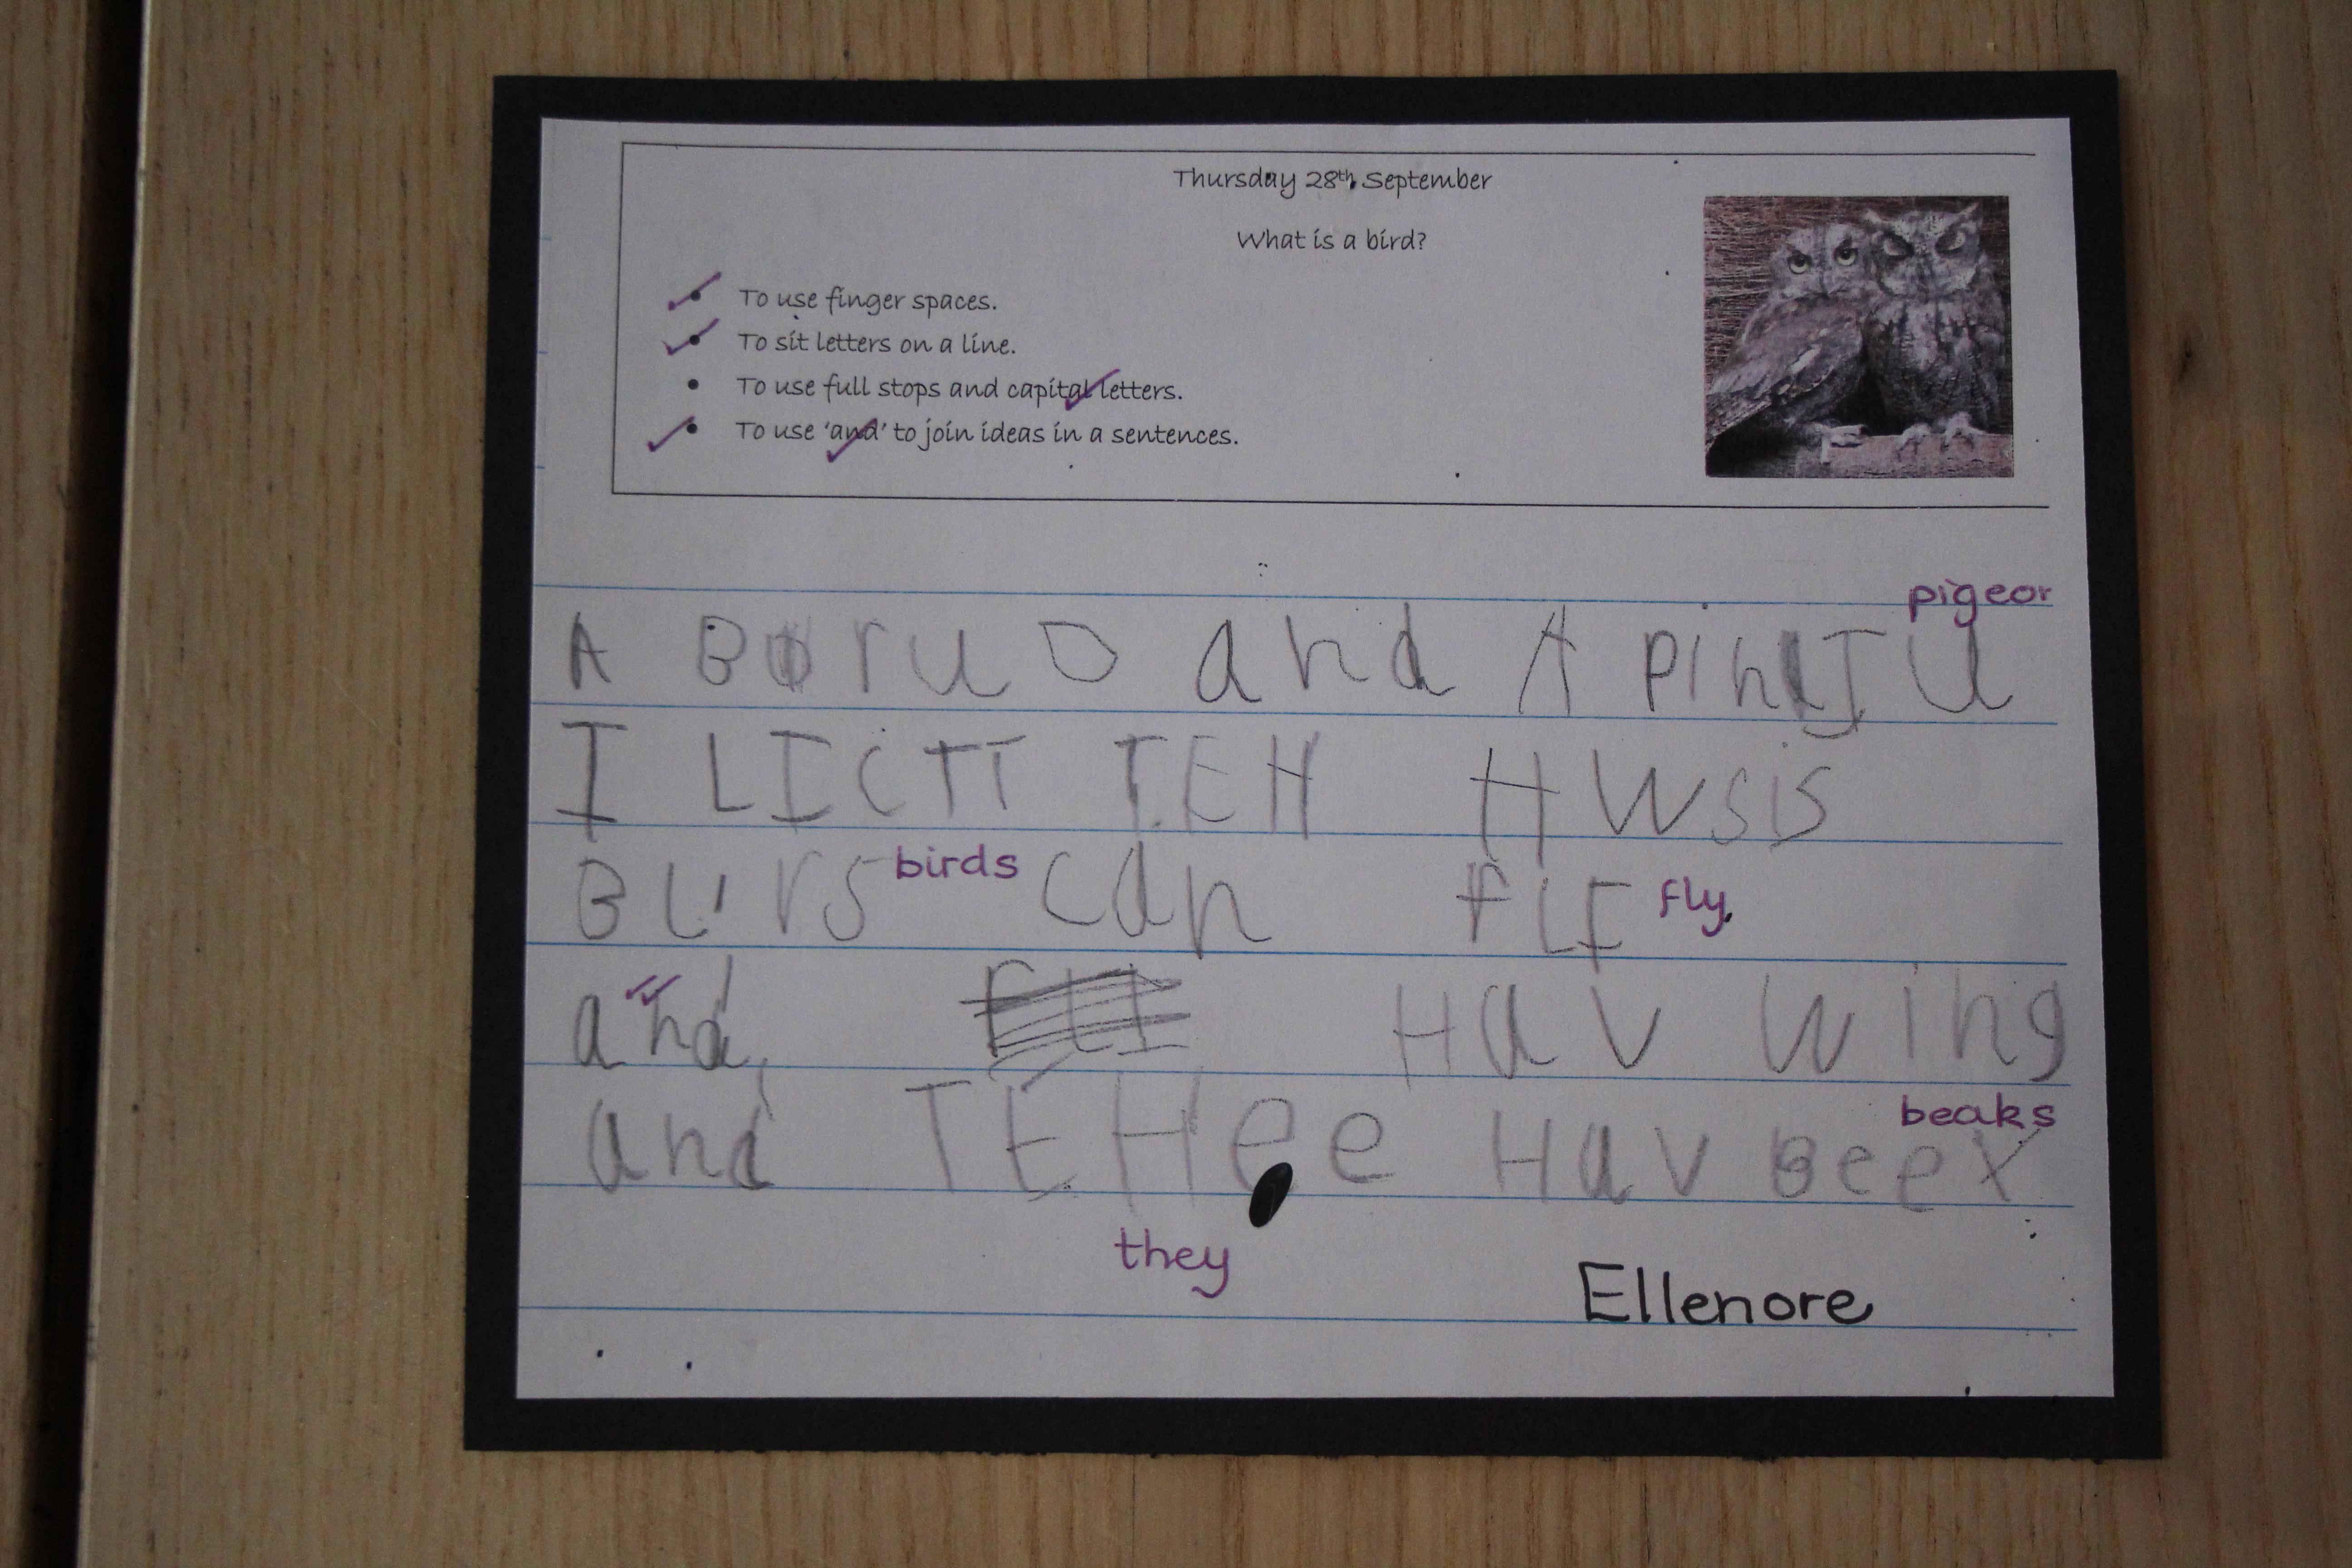 Thursday 28th September
What is a bird?
• To use finger spaces.
• To sit letters on a line.
• To use full stops and capital letters.
• To use 'and' to join ideas in a sentences.
pigeon
A BoruD and A
I LICTT TEH HWSiS
BUrS birds can FLI fly.
and Hav wing
beaks
and TEHee Hav BeeX
they
Ellenore